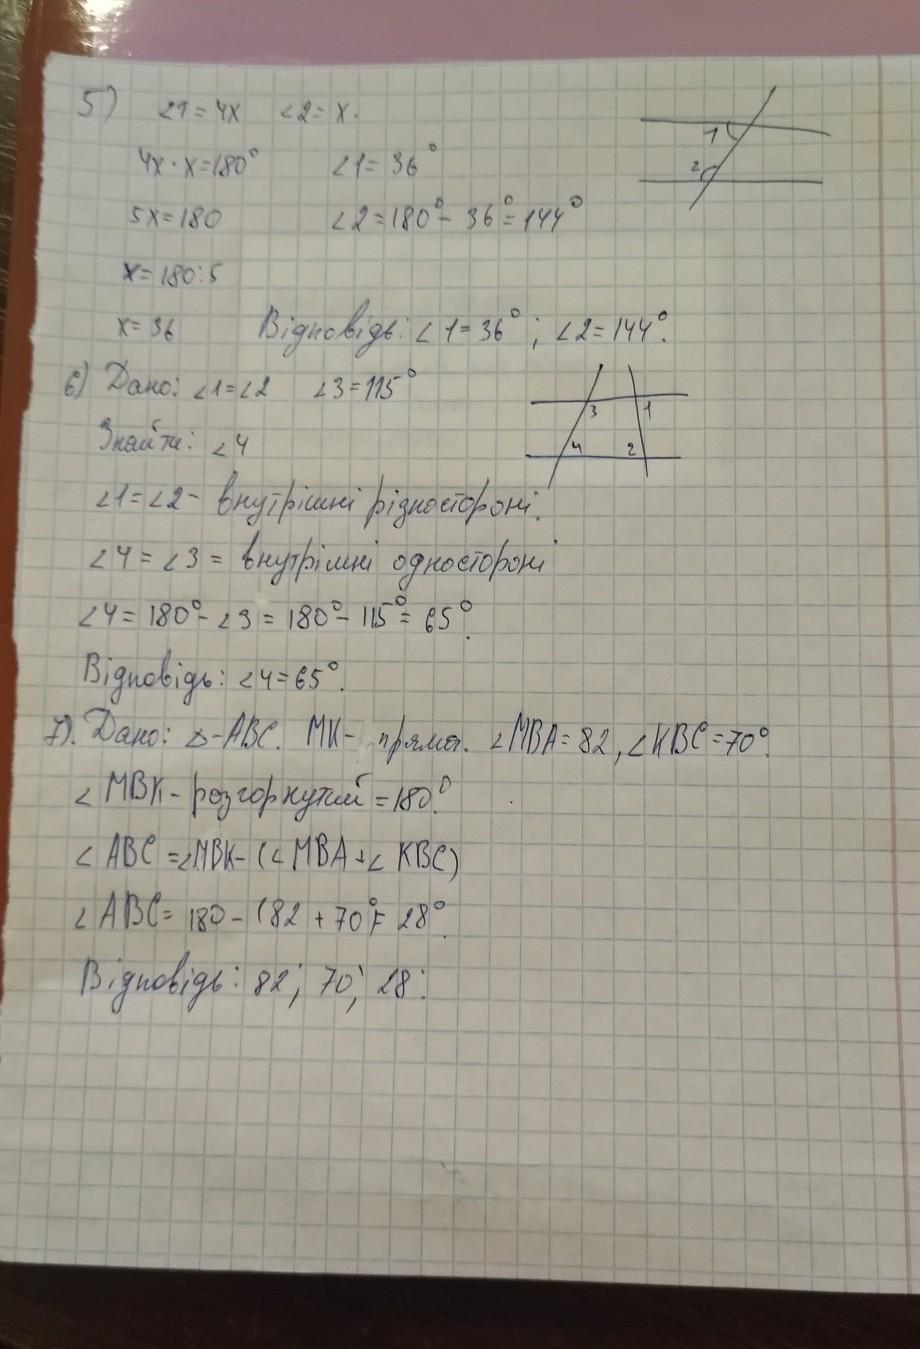 5) ∠1=4x ∠2=x.
4x·x=180° ∠1=36°
5x=180 ∠2=180°-36°=144°
x=180:5
x=36 Відповідь: ∠1=36°; ∠2=144°.
1
2
6) Дано: ∠1=∠2 ∠3=115°
Знайти: ∠4
3 1
4 2
∠1=∠2- внутрішні різностороні.
∠4=∠3= внутрішні одностороні
∠4=180°-∠3=180°-115°=65°.
Відповідь: ∠4=65°.
7). Дано: △-ABC. MK- пряма. ∠MBA=82, ∠KBC=70°.
∠MBK-розгорнутий=180°.
∠ABC=∠MBK-(∠MBA+∠KBC)
∠ABC=180-(82+70°)=28°.
Відповідь: 82; 70; 28.